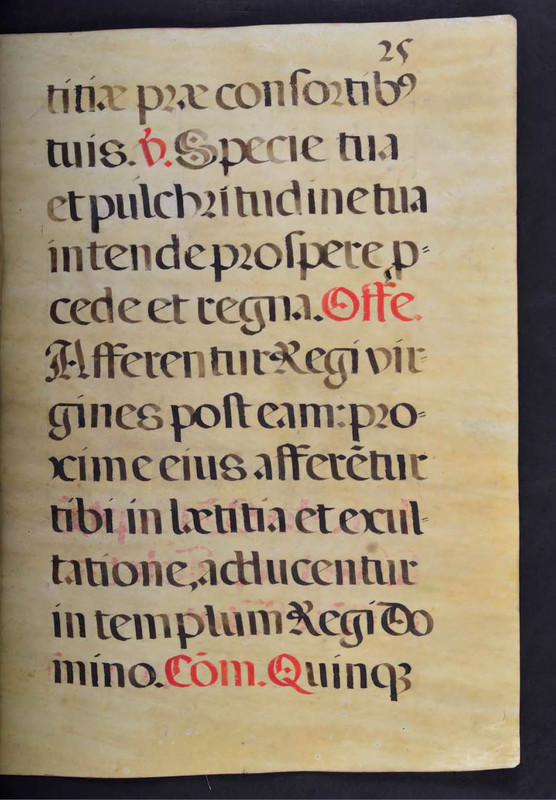 25
titiæ præ conſortibꝰ
tuis. ℣. Specie tua
et pulchritudine tua
intende proſpere, p⸗
cede et regna. Offe.
Afferentur Regi vir⸗
gines poſt eam: pro⸗
xime eius afferētur
tibi in lætitia et exul⸗
tatione, adducentur
in templum Regi Do
mino. Cōm. Quinqꝫ